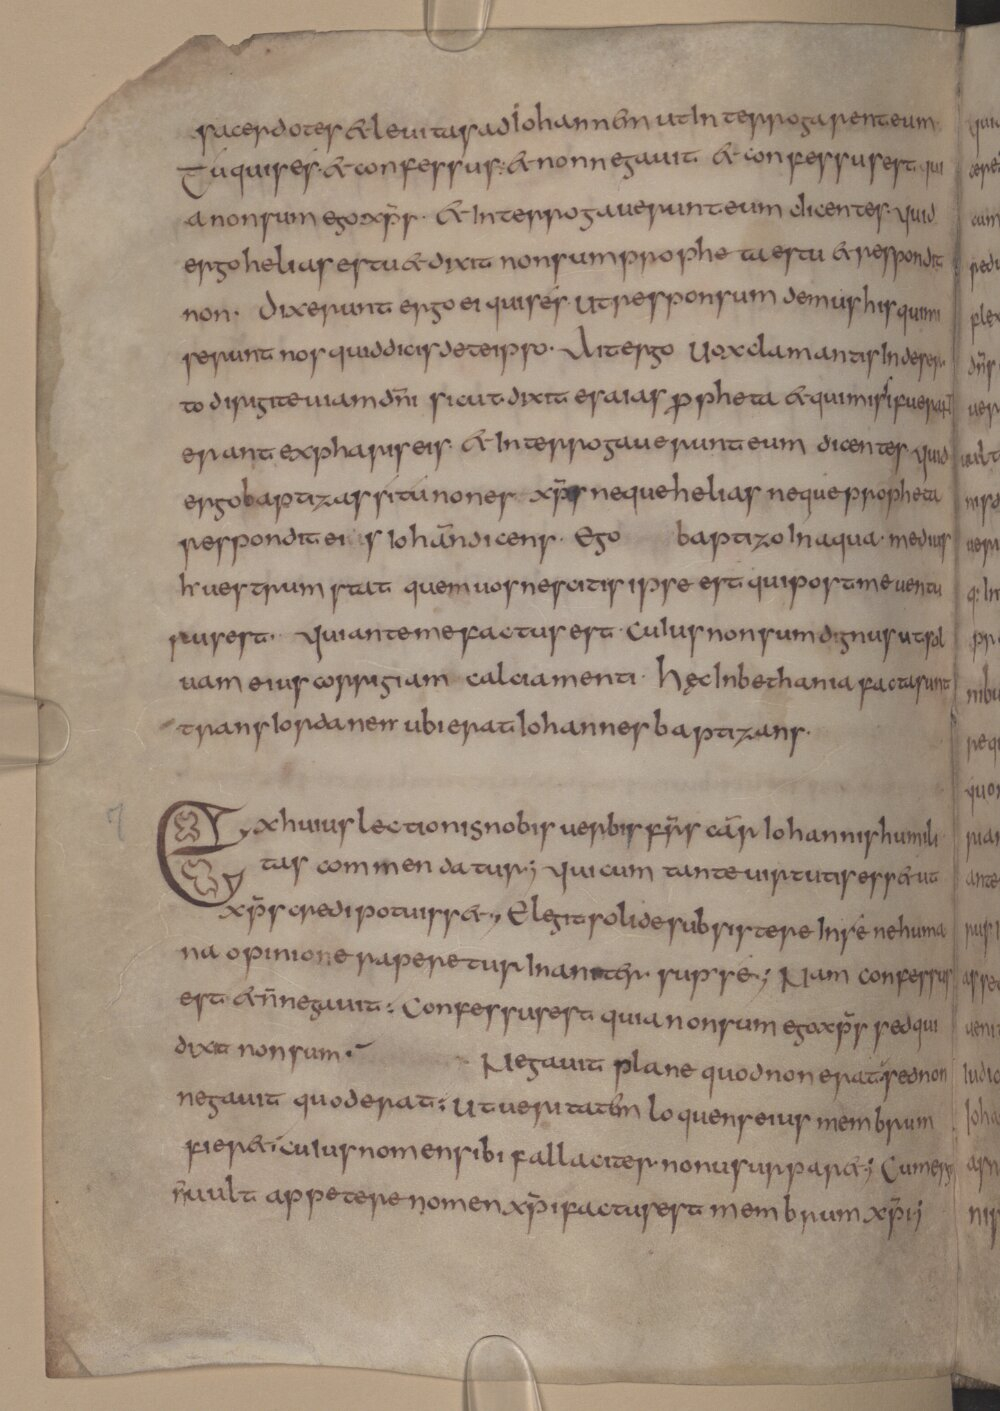 sacerdotes & leuitas ad Iohannem ut Interrogarent eum
Tú quis és. & confessus. & non negauit & confessus est. qui
a non sum ego xp̄s. & Interrogauerunt eum dicentes. quid
ergo helias es tu & dixit non sum propheta es tu & respondit
non. Dixerunt ergo ei quis és. Ut responsum demus his qui mi
serunt nos quid dicis de te ipso. Ait ergo Uox clamantis In deser
to dirigite uiam dn̄i sicut dixit esaias ꝓpheta & qui missi fuerant
erant ex phariseis. & Interrogauerunt eum dicentes quid
ergo baptizas si tú non es xp̄s neque helias neque propheta
respondit eis Iohān dicens. Ego baptizo In aqua. medius
h uestrum stat quem uos nescitis ipse est qui post me uentu
rus est. Qui ante me factus est. Cuius non sum dignus ut sol
uam eius corrigiam calciamenti. Hęc In bethania facta sunt
trans Iordanen ubi erat Iohannes baptizans.
7
Ex huius lectionis nobis uerbis fr̄s cār Iohannis humili
tas commendatur; Qui cum tante uirtutis ess& ut
xp̄s credi potuiss&; Elegit solide subsistere In sé ne huma
na opinione raperetur Inaniter supr sé; Nam confessus
est & n̄ negauit; Confessus est quia non sum ego xp̄s sed qui
dixit non sum. Negauit plane quod non erat sed non
negauit quod erat; Ut ueritatem loquens eius membrum
fier&; cuius nomen sibi fallaciter non usurpar&; Cum erg
n̄ uult appetere nomen xp̄i factus est membrum xp̄i;